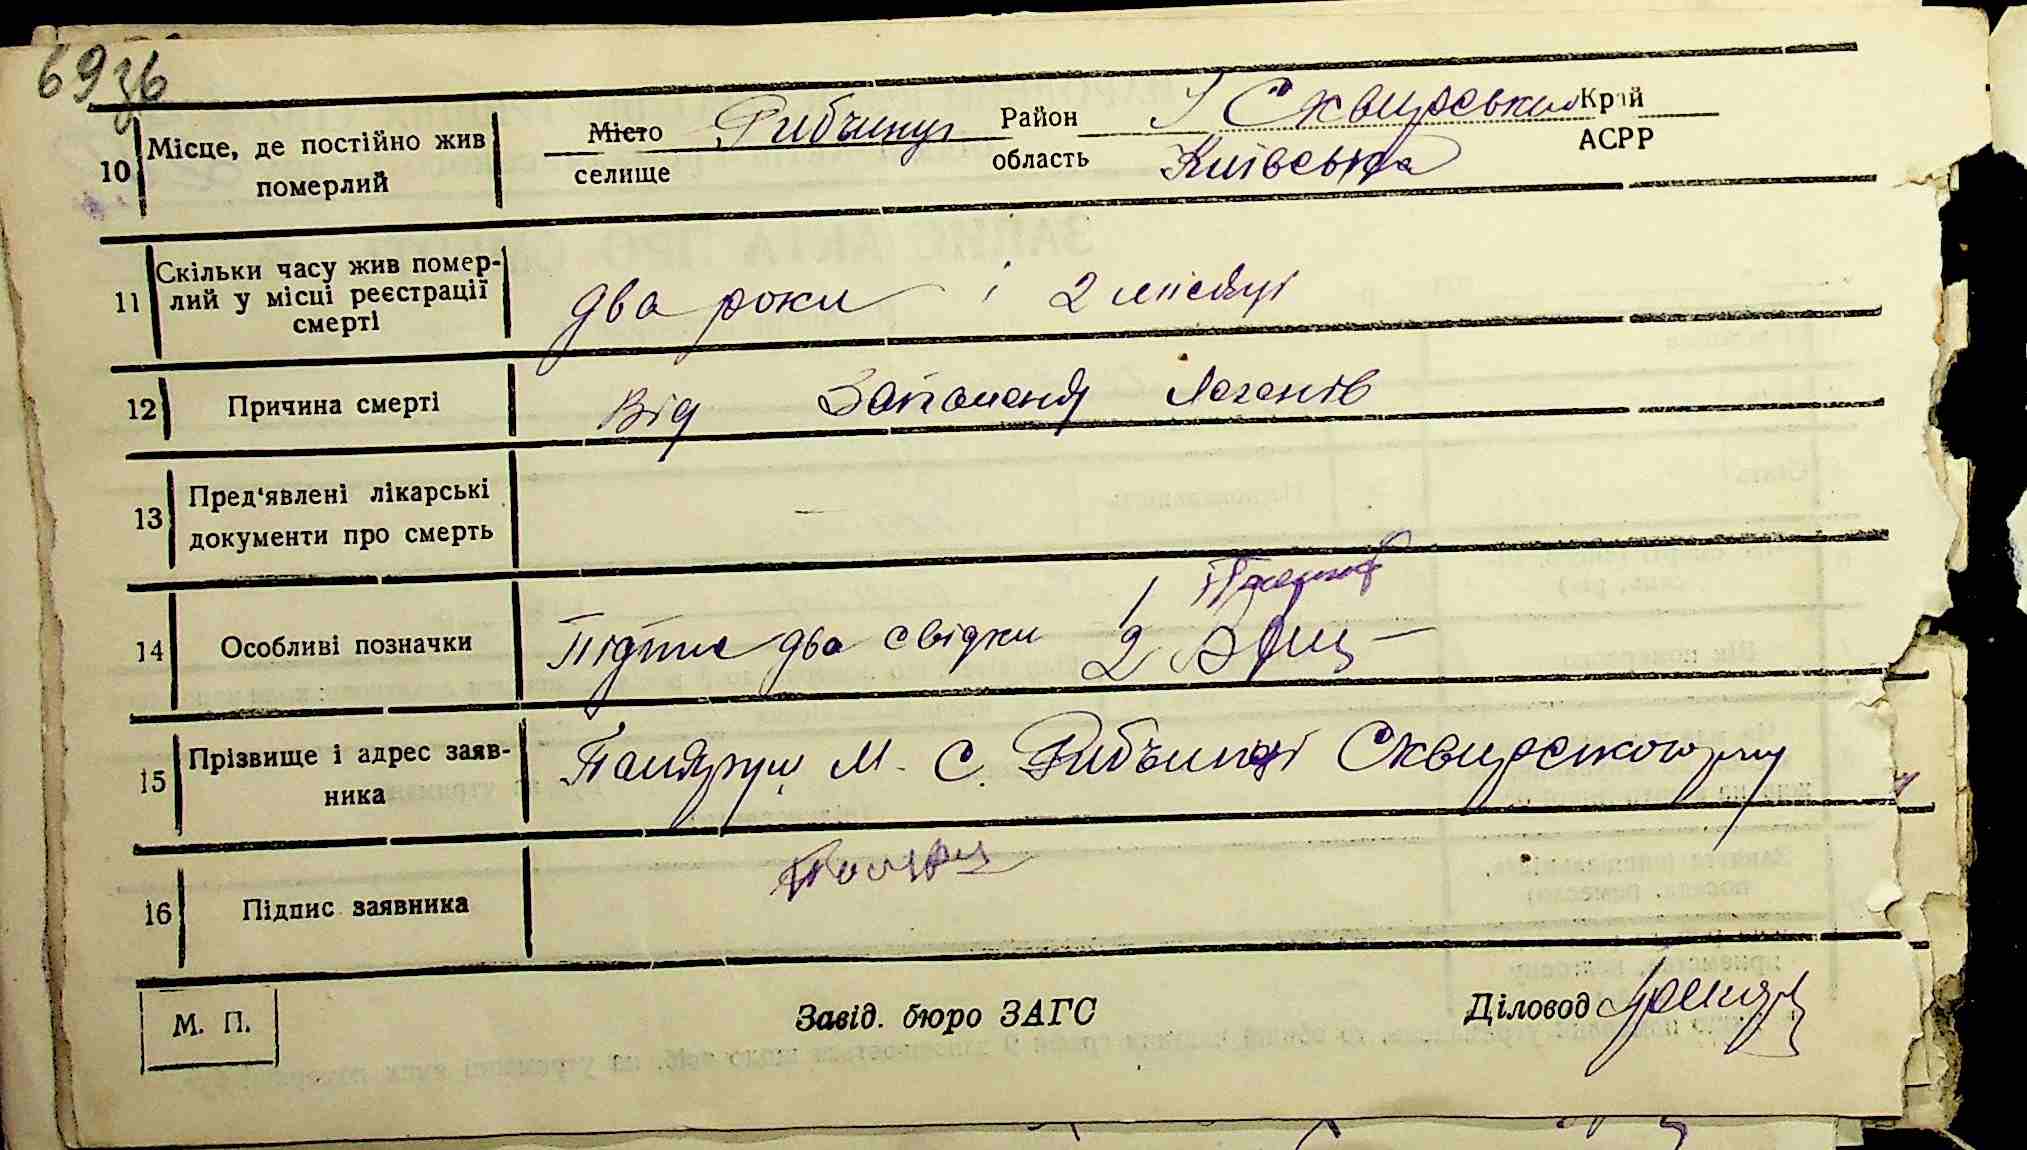 69зв
10 Місце, де постійно жив померлий
Місто селище Рибчинці Район Сквирський Край
область Київська АСРР
11 Скільки часу жив помер-
лий у місці реєстрації
смерті
два роки і 2 місяці
12 Причина смерті
Від Запаленя легенів
13 Пред'явлені лікарські
документи про смерть
—
14 Особливі позначки
Підпис два свідки 1
2
15 Прізвище і адрес заяв-
ника
М. С. Рибчинці Сквирského рну
16 Підпис заявника
М. П.
Завід. бюро ЗАГС
Діловод